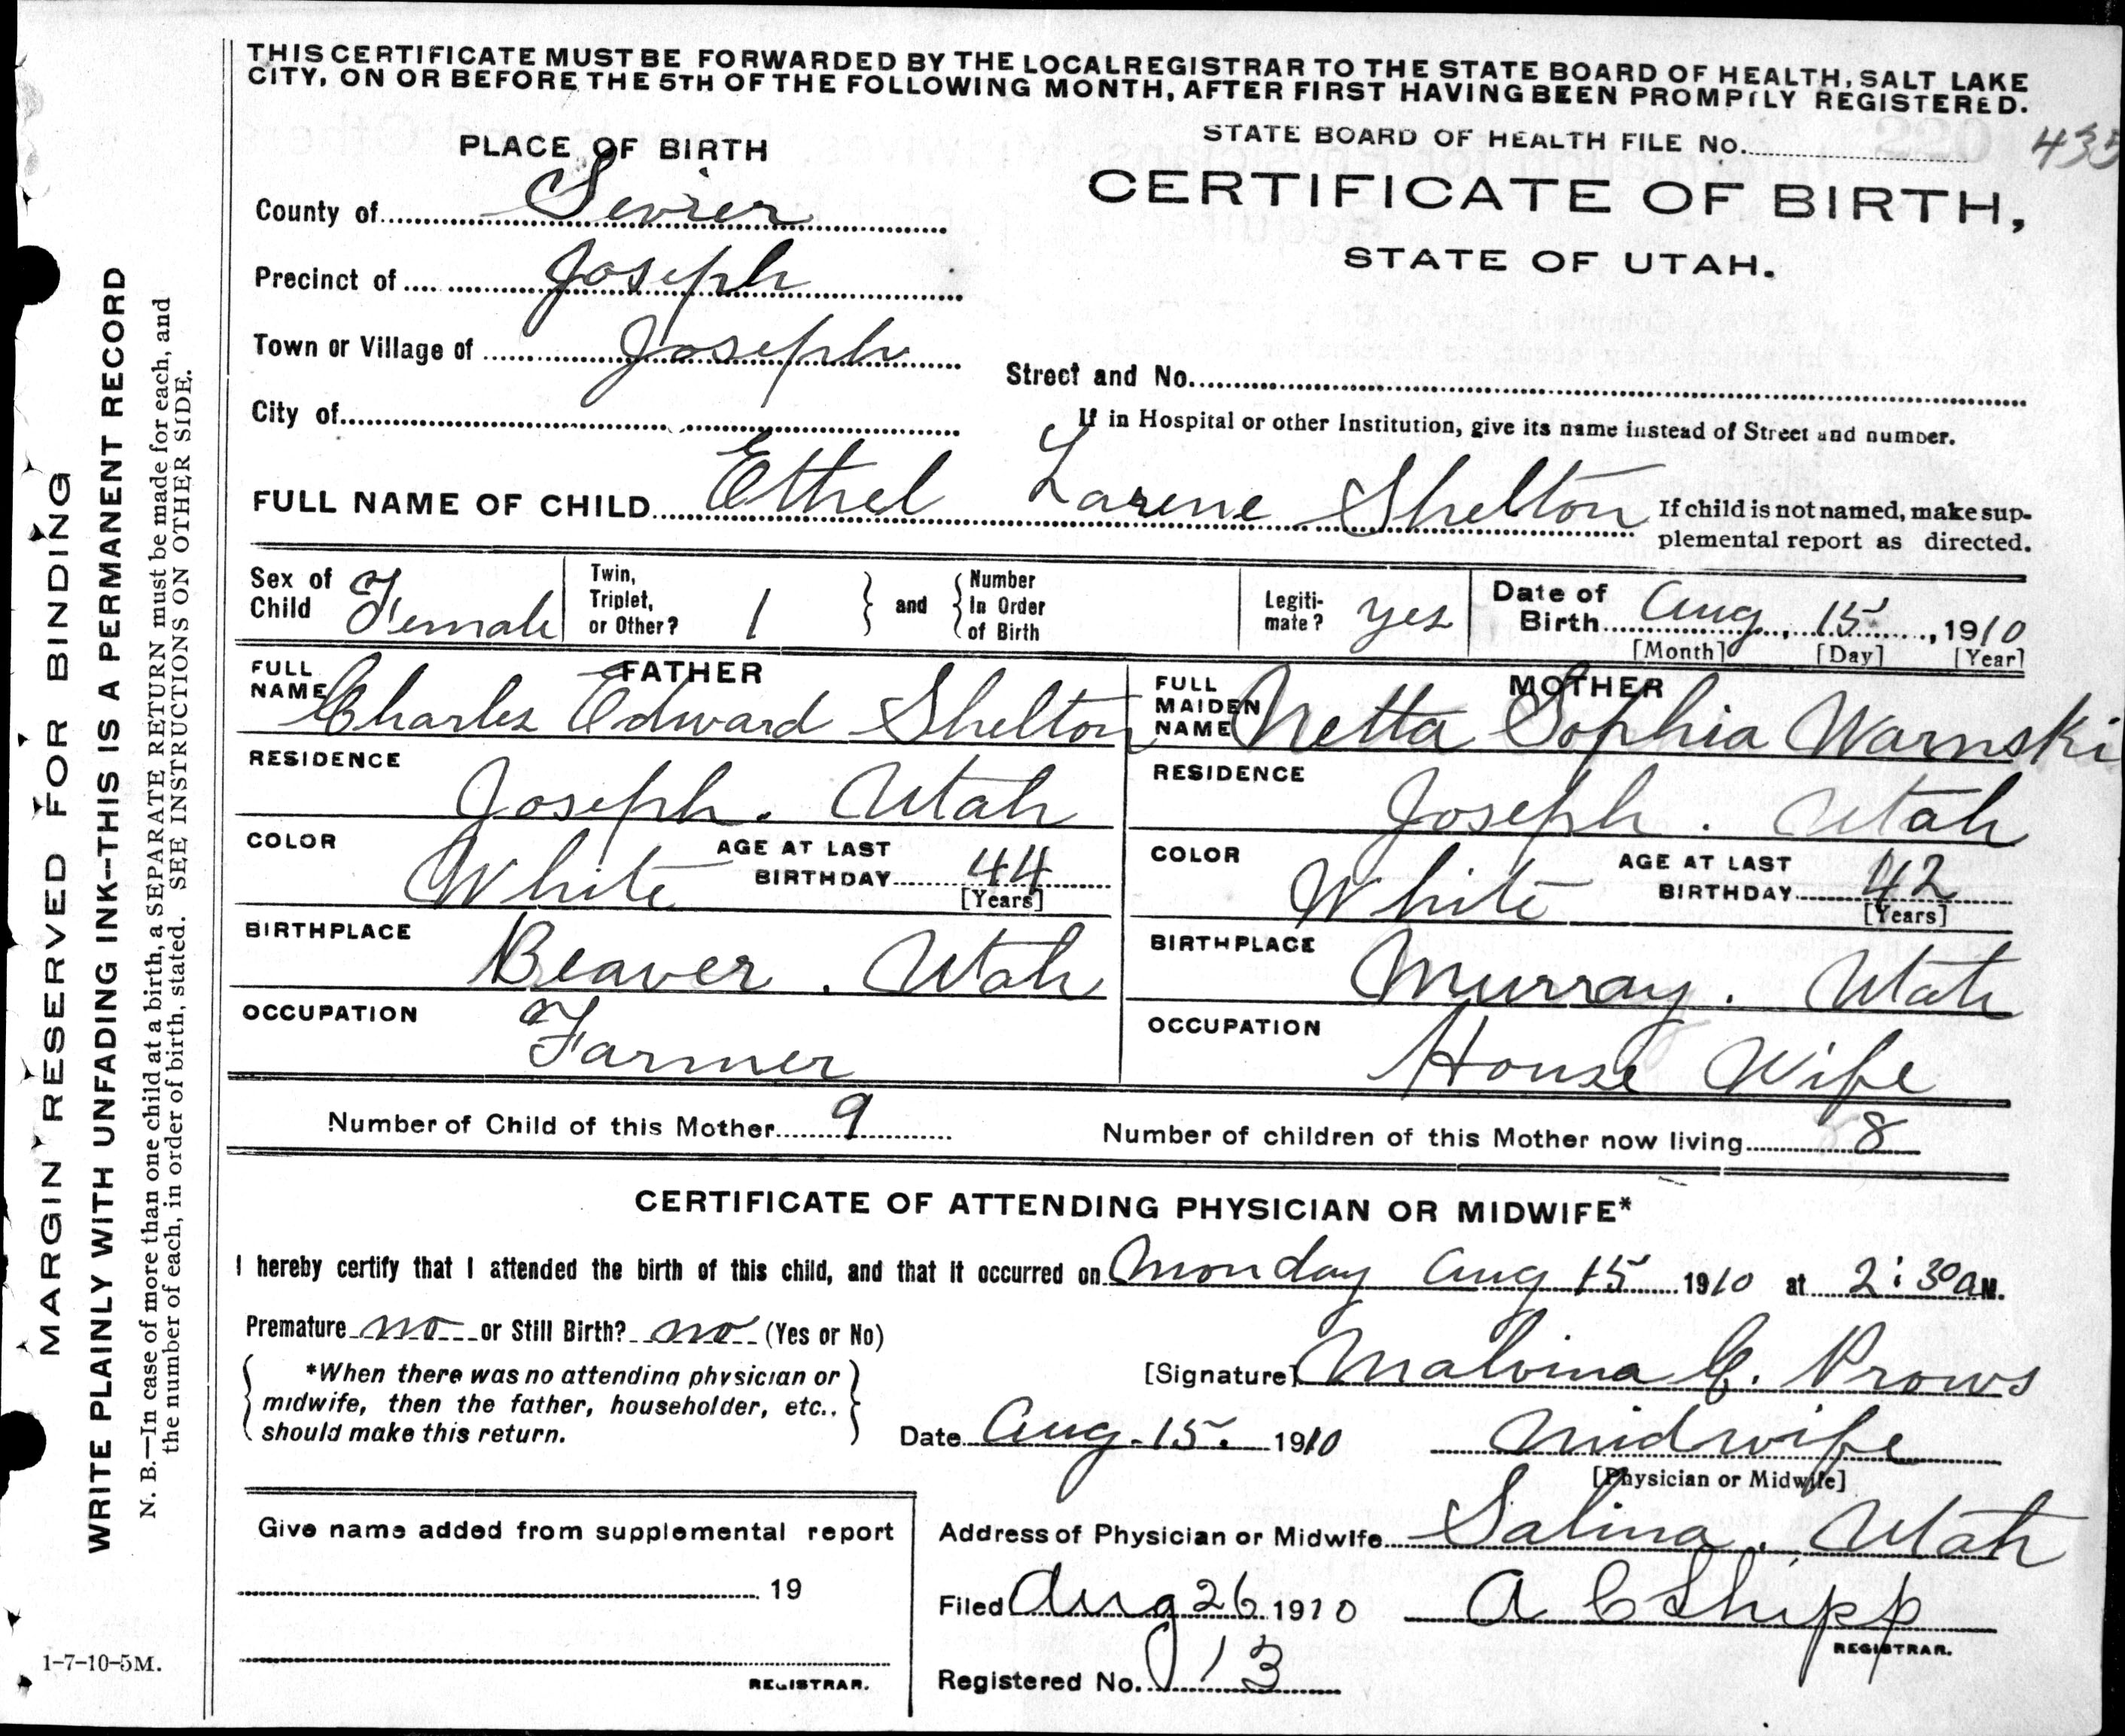 THIS CERTIFICATE MUST BE FORWARDED BY THE LOCAL REGISTRAR TO THE STATE BOARD OF HEALTH, SALT LAKE
CITY, ON OR BEFORE THE 5TH OF THE FOLLOWING MONTH, AFTER FIRST HAVING BEEN PROMPTLY REGISTERED.
PLACE OF BIRTH
STATE BOARD OF HEALTH FILE No. 435
CERTIFICATE OF BIRTH,
STATE OF UTAH.
County of Sevier
Precinct of Joseph
Town or Village of Joseph
Street and No.
City of
If in Hospital or other Institution, give its name instead of Street and number.
FULL NAME OF CHILD Ethel Larene Shelton
If child is not named, make sup-
plemental report as directed.
Sex of
Child Female
Twin,
Triplet,
or Other? 1
and
Number
In Order
of Birth
Legiti-
mate? yes
Date of
Birth Aug 15, 1910
[Month] [Day] [Year]
FATHER
FULL
NAME Charles Edward Shelton
RESIDENCE
Joseph. Utah
COLOR
White
AGE AT LAST
BIRTHDAY 44
[Years]
BIRTHPLACE
Beaver. Utah
OCCUPATION
Farmer
MOTHER
FULL
MAIDEN
NAME Netta Sophia Warnski
RESIDENCE
Joseph. Utah
COLOR
White
AGE AT LAST
BIRTHDAY 42
[Years]
BIRTHPLACE
Murray. Utah
OCCUPATION
House Wife
Number of Child of this Mother 9
Number of children of this Mother now living 8
CERTIFICATE OF ATTENDING PHYSICIAN OR MIDWIFE*
I hereby certify that I attended the birth of this child, and that it occurred on Monday Aug 15 1910 at 2:30 A M.
Premature no or Still Birth? no (Yes or No)
*When there was no attending physician or
midwife, then the father, householder, etc.,
should make this return.
[Signature] Malvina C. Prows
Date Aug. 15. 1910
Midwife
[Physician or Midwife]
Give name added from supplemental report
19
REGISTRAR.
Address of Physician or Midwife Salina. Utah
Filed Aug 26 1910 A C Shipp
REGISTRAR.
Registered No. 13
MARGIN RESERVED FOR BINDING
WRITE PLAINLY WITH UNFADING INK--THIS IS A PERMANENT RECORD
N. B.—In case of more than one child at a birth, a SEPARATE RETURN must be made for each, and
the number of each, in order of birth, stated. SEE INSTRUCTIONS ON OTHER SIDE.
1-7-10-5M.